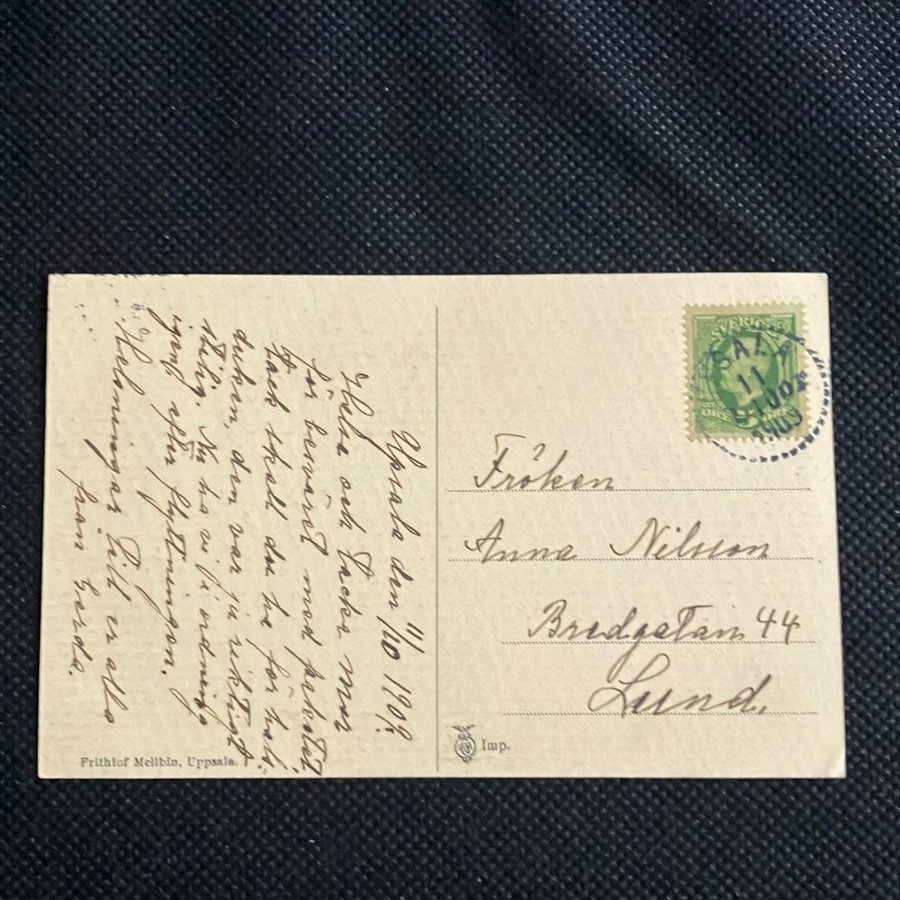 Upsala den 11/10 1909.
Helsa och tacka mor
för besväret med paketet
Tack skall du ha för hals-
duken, den var ju riktigt
ståtlig. Nu ha vi i ordning
igen efter flyttningen.
Helsningar till er alla
från Gerda.
Frithiof Mellbin, Uppsala.
SVERIGE
ÖRE 5 ÖRE
SALA
11
10
1909
Fröken
Anna Nilsson
Bredgatan 44
Lund.
Imp.